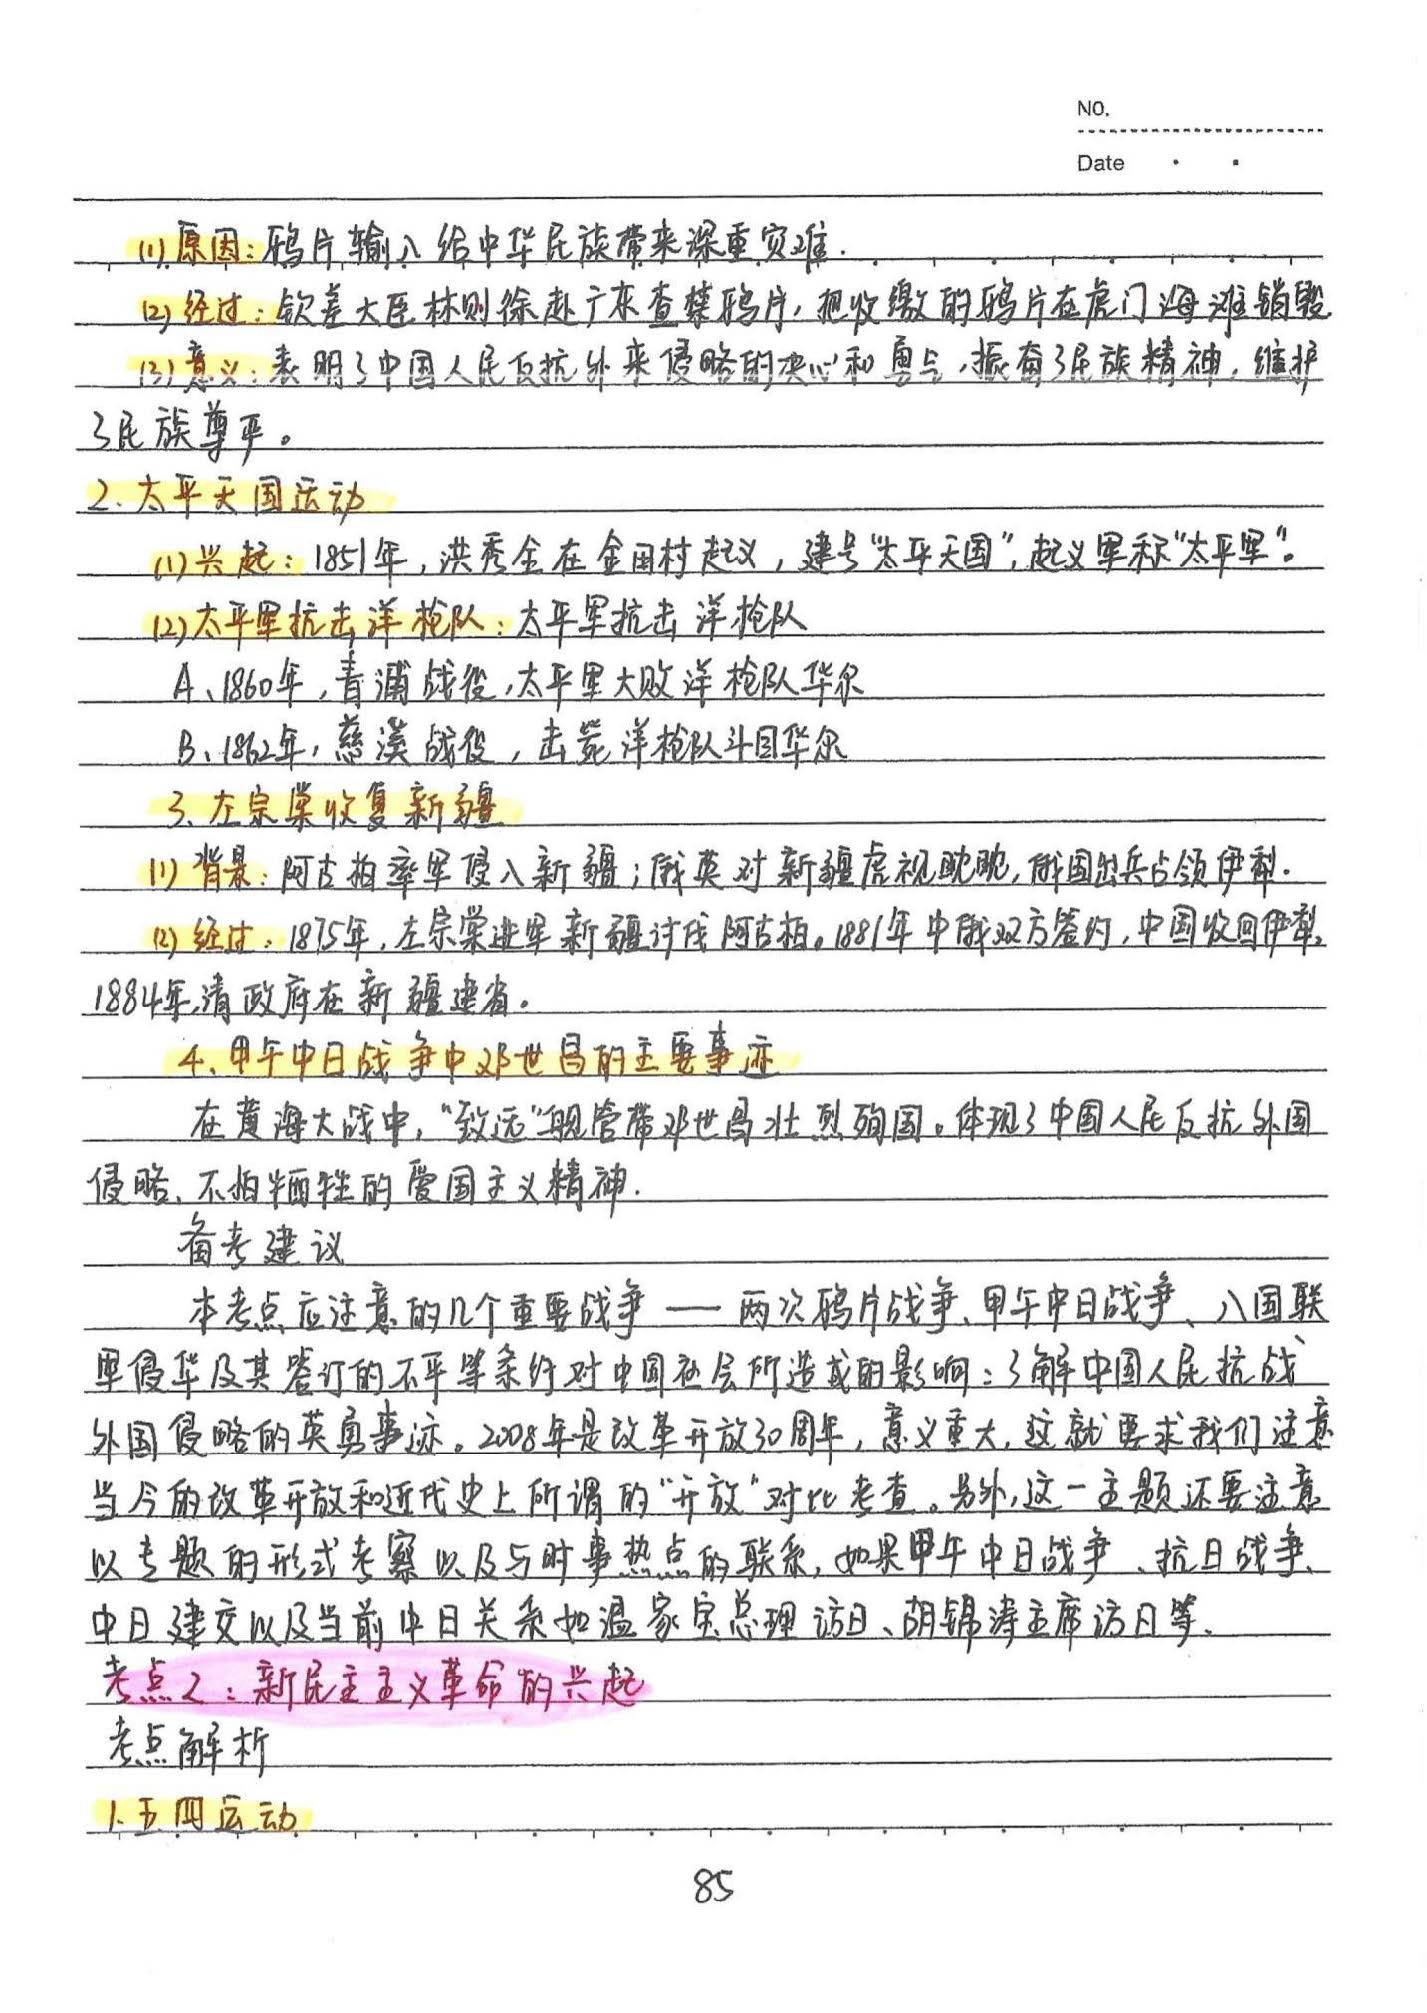 NO.
Date
(1) 原因：鸦片输入给中华民族带来深重灾难.
(2) 经过：钦差大臣林则徐赴广东查禁鸦片，把收缴的鸦片在虎门海滩销毁
(3) 意义：表明了中国人民反抗外来侵略的决心和勇气，振奋了民族精神，维护
了民族尊严。
2. 太平天国运动
(1) 兴起：1851年，洪秀全在金田村起义，建号“太平天国”，起义军称“太平军”。
(2) 太平军抗击洋枪队：太平军抗击洋枪队
A、1860年，青浦战役，太平军大败洋枪队华尔
B、1862年，慈溪战役，击毙洋枪队斗目华尔
3、左宗棠收复新疆
(1) 背景：阿古柏率军侵入新疆；俄英对新疆虎视眈眈，俄国出兵占领伊犁.
(2) 经过：1875年，左宗棠进军新疆讨伐阿古柏。1881年中俄双方签约，中国收回伊犁。
1884年，清政府在新疆建省。
4、甲午中日战争中邓世昌的主要事迹
在黄海大战中，“致远”舰管带邓世昌壮烈殉国。体现了中国人民反抗外国
侵略、不怕牺牲的爱国主义精神.
备考建议
本考点应注意的几个重要战争——两次鸦片战争、甲午中日战争、八国联
军侵华及其签订的不平等条约对中国社会所造成的影响；了解中国人民抗战
外国侵略的英勇事迹。2008年是改革开放30周年，意义重大，这就要求我们注意
当今的改革开放和近代史上所谓的“开放”对比考查。另外，这一主题还要注意
以专题的形式考察以及与时事热点的联系，如果甲午中日战争、抗日战争、
中日建交以及当前中日关系如温家宝总理访日、胡锦涛主席访日等、
考点2：新民主主义革命的兴起
考点解析
1、五四运动
85